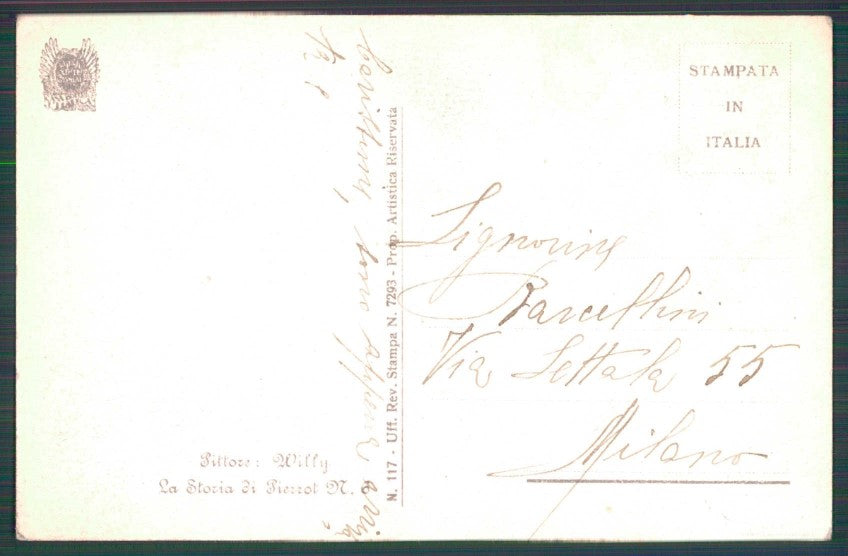 STAMPATA
IN
ITALIA
Signorina
Barcellini
Via Settala 55
Milano
N. 117 - Uff. Rev. Stampa N. 7293 - Prop. Artistica Riservata
sono appena
Pittore: Willy
La Storia di Pierrot N.